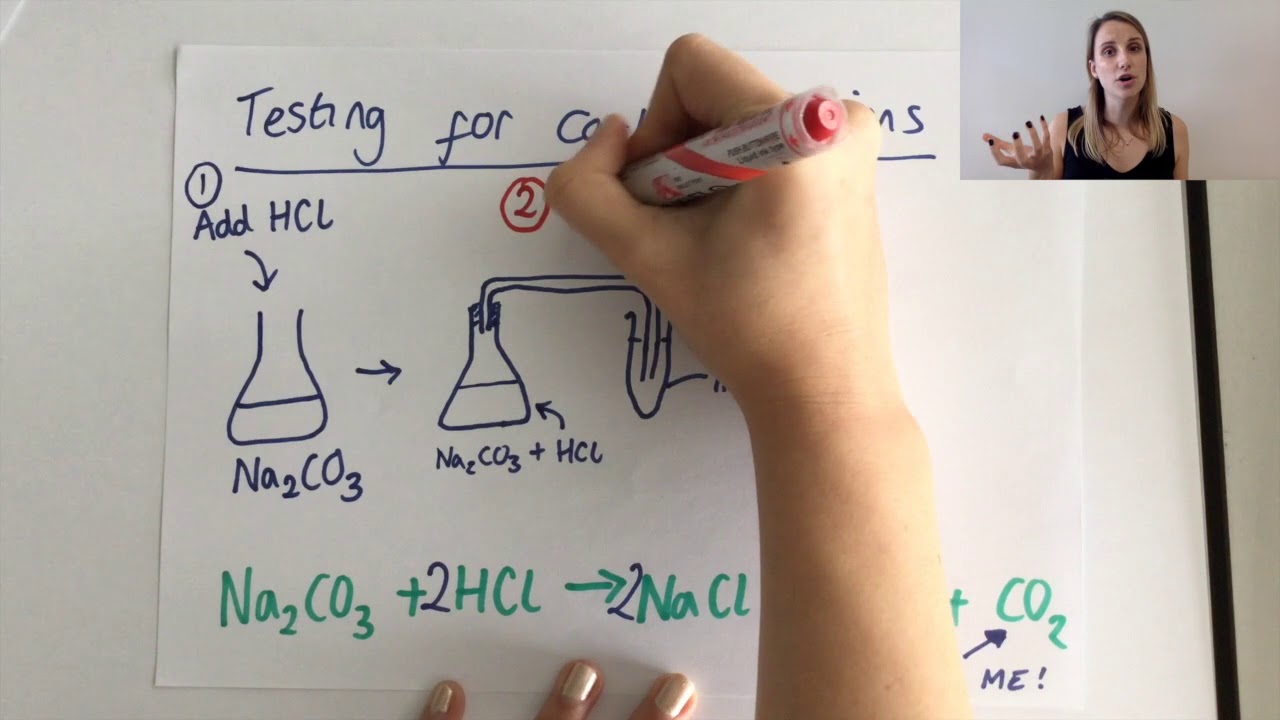 Testing for
①
Add HCl
②
Na₂CO₃
Na₂CO₃ + HCl
Na₂CO₃ + 2HCl → 2NaCl + CO₂
ME!